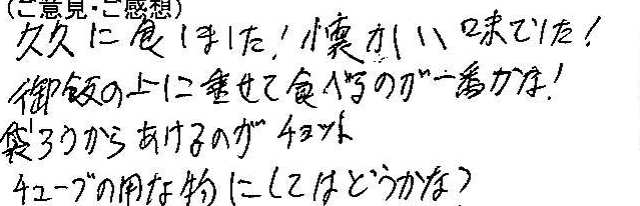 (ご意見・ご感想)
久久に食しました!懐かしい味でした!
御飯の上に乗せて食べるのが一番かな!
袋うらからあけるのがチョット
チューブの用な物にしてはどうかな?